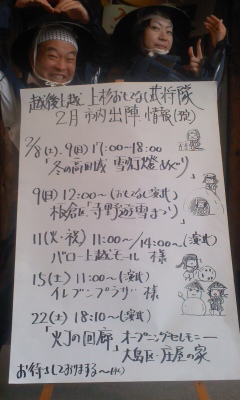 越後上越 上杉おもてなし武将隊
2月 市内出陣 情報(予定)
2/8(土)、9(日) 17:00~18:00
「冬の高田城 雪灯燈めぐり」
9(日) 12:00~(おもてなし演武)
板倉区「寺野遊雪まつり」
11(火・祝) 11:00~/14:00~(演武)
バロー上越モール 様
15(土) 11:00~(演武)
イレブンプラザー 様
22(土) 18:10~(演武)
「灯の回廊」オープニングセレモニー
大島区・庄屋の家
お待ちしておりまする~